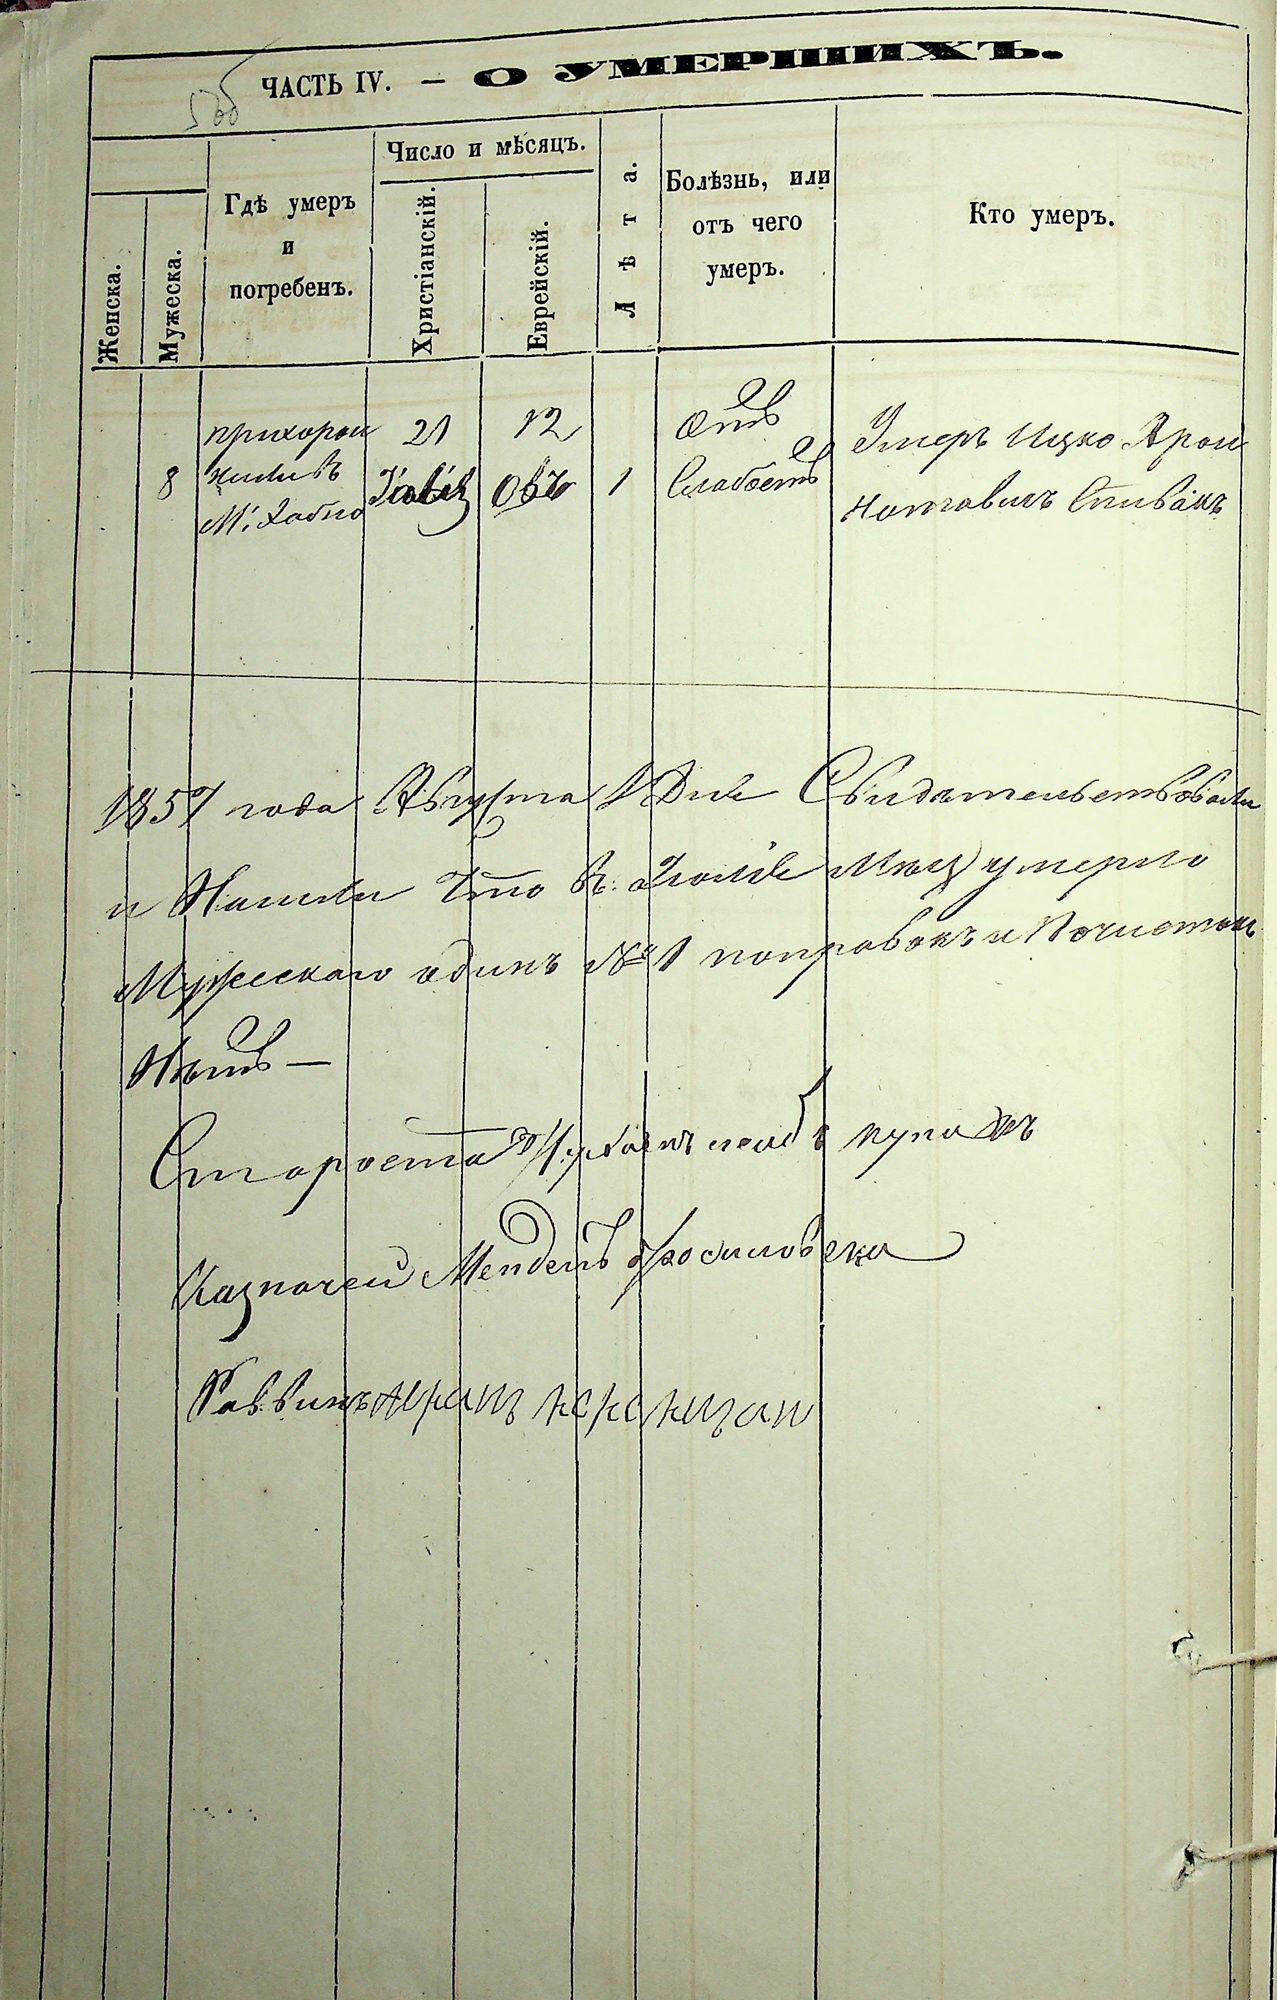 ЧАСТЬ IV. — О УМЕРШИХЪ.
Женска.
Мужеска.
Гдѣ умеръ
и
погребенъ.
Число и мѣсяцъ.
Христіанскій.
Еврейскій.
Лѣта.
Болѣзнь, или
отъ чего
умеръ.
Кто умеръ.
8
прихорон
жили въ
М. Хабно
21
Іюля
12
Овъ
1
Отъ
Слабость
Умеръ Ицко Арон
Нотгавичъ Спивакъ
1857 года Августа 1 Дня Свидѣтельствовали
и Нашли Что въ Іюлѣ Мѣсц умерло
Мужескаго одинъ № 1 поправокъ и Почистокъ
Нѣтъ —
Староста
Казначей Мендель
Раввинъ